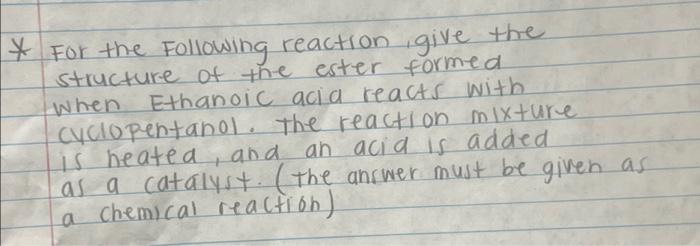 * For the Following reaction, give the
structure of the ester formed
when Ethanoic acid reacts with
cyclopentanol. The reaction mixture
is heated, and an acid is added
as a catalyst. (the answer must be given as
a chemical reaction)